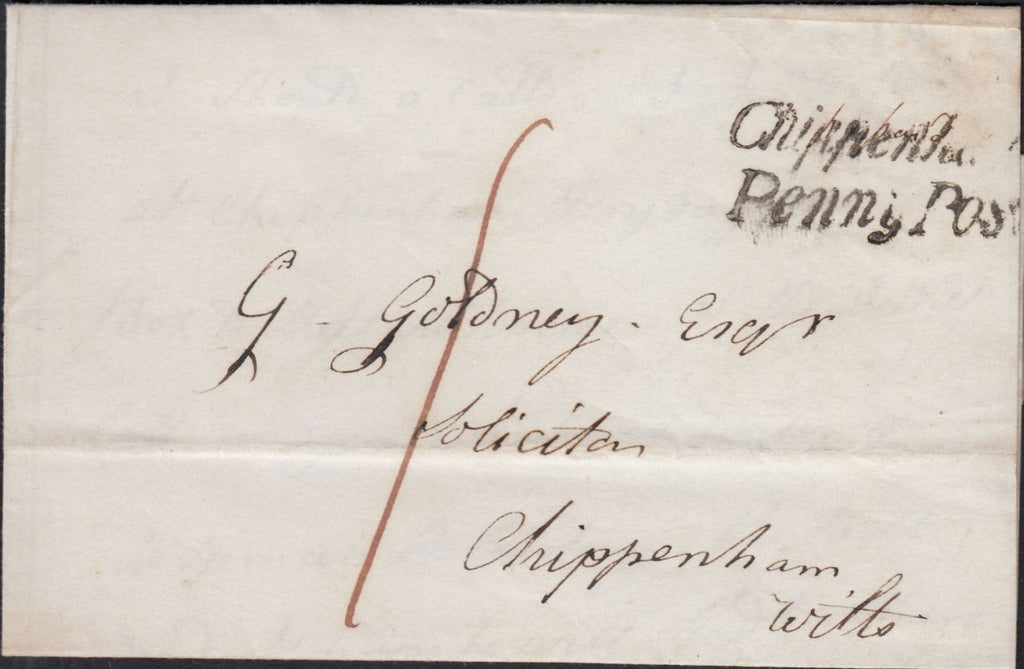 Chippenha
Penny Post
G - Goldney. Esqr
Solicitor
Chippenham
Wilts